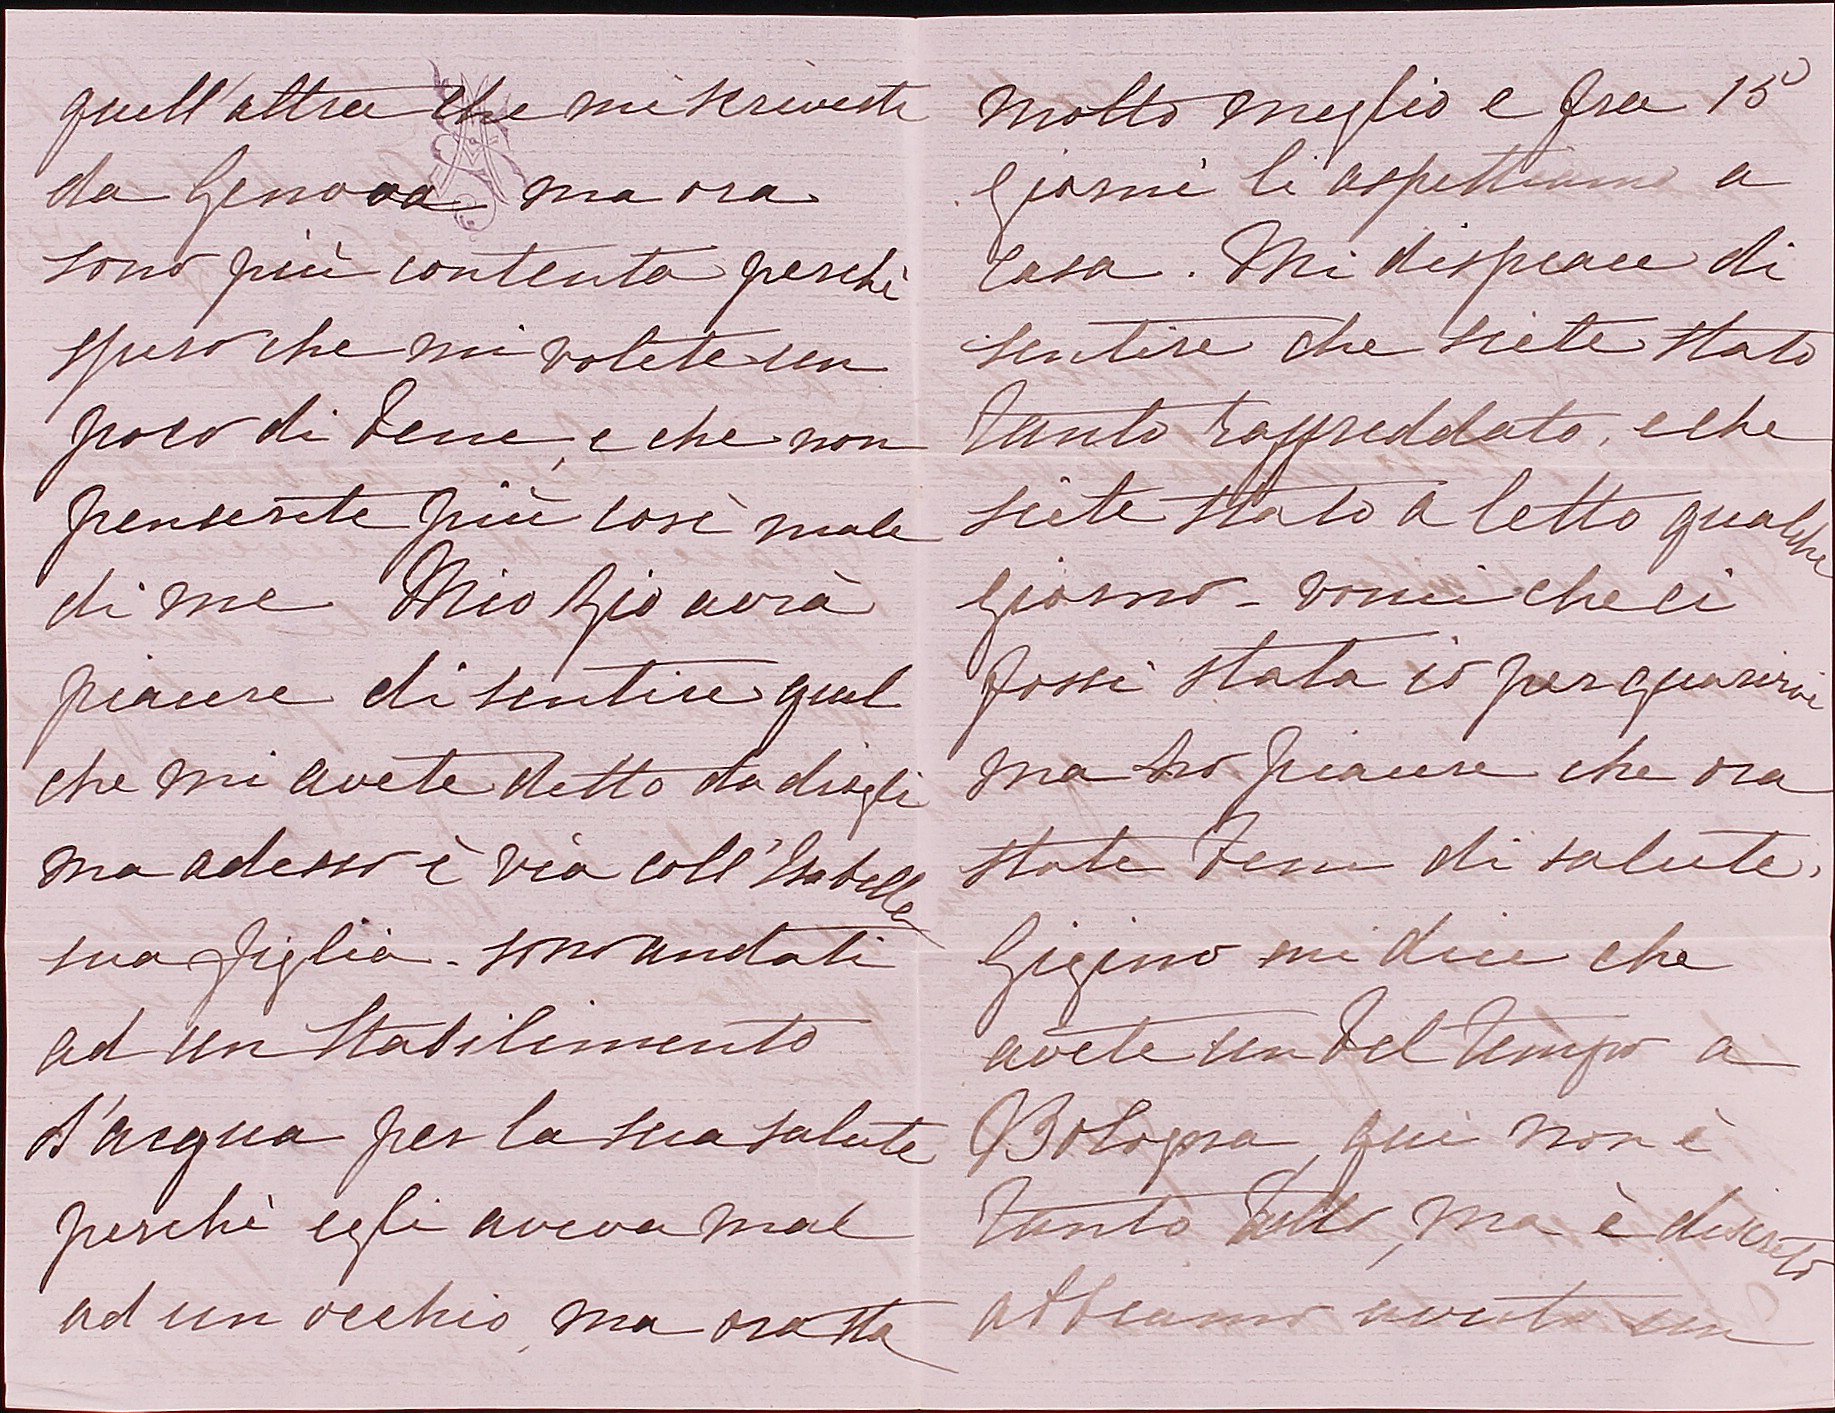 quell'altra che mi scriveste
da Genova ma ora
sono più contenta perchè
spero che mi volete un
poco di bene, e che non
penserete più così male
di me Mio Zio avrà
piacere di sentire quel
che mi avete detto da dirgli
ma adesso è via coll'Isabella
sua figlia - sono andati
ad un Stabilimento
d'acqua per la sua salute
perchè egli aveva mal
ad un occhio, ma ora sta
molto meglio e fra 15
giorni li aspettiamo a
casa. Mi dispiace di
sentire che siete stato
tanto raffreddato, e che
siete stato a letto qualche
giorno - vorrei che ci
fossi stata io per guarirvi
ma ho piacere che ora
state bene di salute.
Gigino mi dice che
avete un bel tempo a
Bologna, qui non è
tanto bello, ma è discreto
abbiamo avuto un